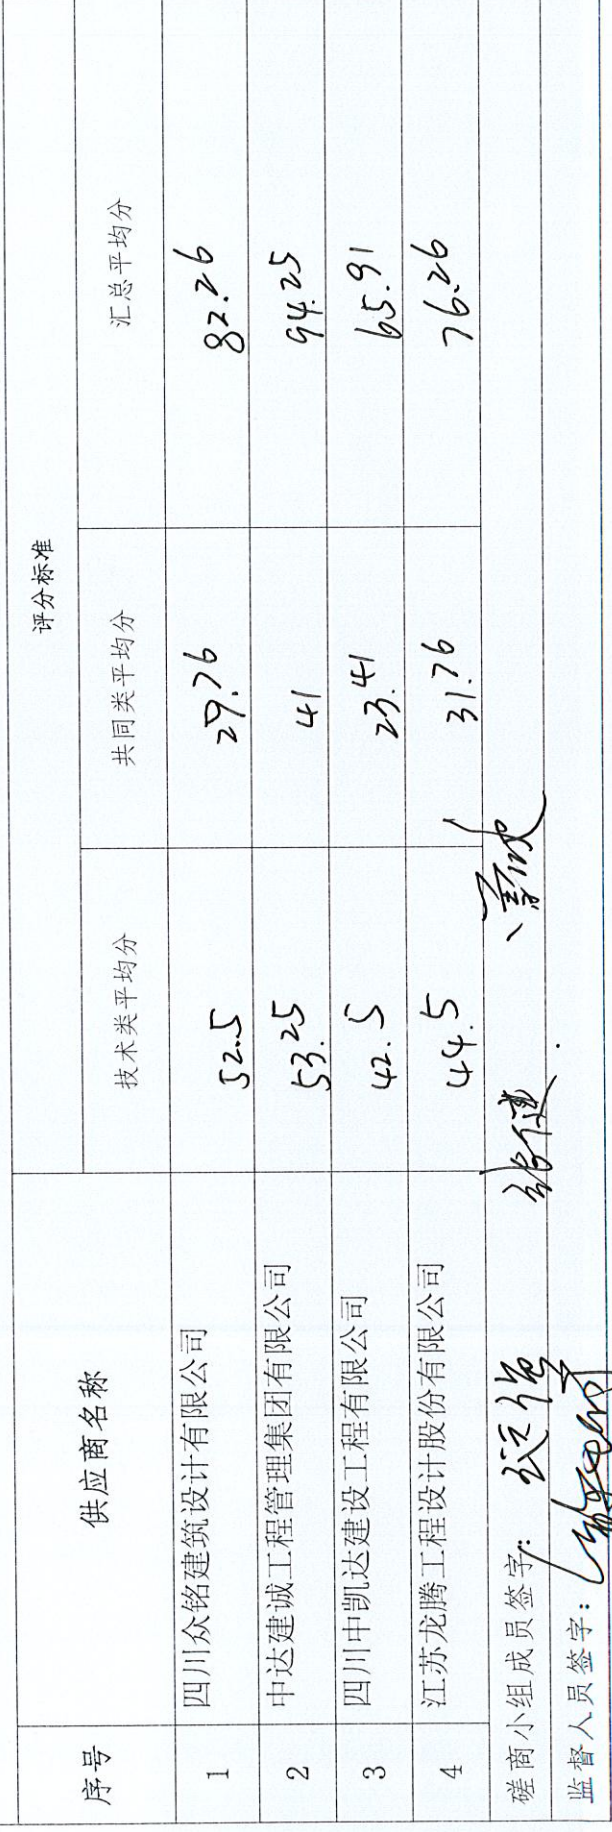 评分标准
序号 供应商名称 技术类平均分 共同类平均分 汇总平均分
1 四川众铭建筑设计有限公司 52.5 29.76 82.26
2 中达建诚工程管理集团有限公司 53.25 41 94.25
3 四川中凯达建设工程有限公司 42.5 23.41 65.91
4 江苏龙腾工程设计股份有限公司 44.5 31.76 76.26
磋商小组成员签字:
监督人员签字: